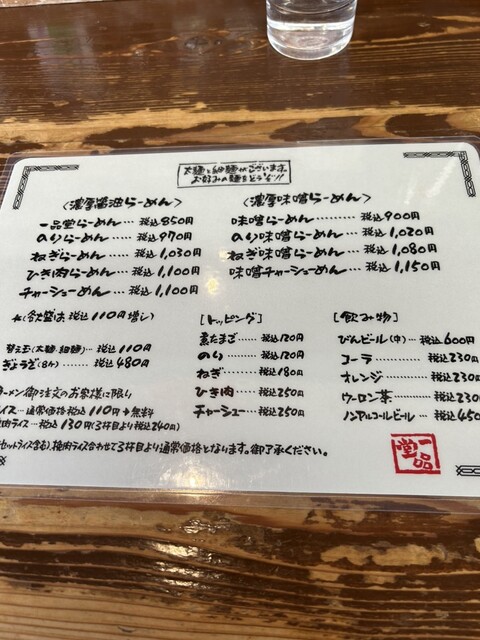 太麺と細麺がございます。
お好みの麺をどうぞ!!
〈濃厚醤油らーめん〉
一品堂らーめん… 税込850円
のりらーめん…… 税込970円
ねぎらーめん…… 税込1,030円
ひき肉らーめん… 税込1,100円
チャーシューめん… 税込1,100円
〈濃厚味噌らーめん〉
味噌らーめん…… 税込900円
のり味噌らーめん… 税込1,020円
ねぎ味噌らーめん… 税込1,080円
味噌チャーシューめん… 税込1,150円
税込110円増し)
替え玉(太麺・細麺)… 税込110円
ぎょうざ(8ヶ)…… 税込480円
ラーメン御注文のお客様に限り
イス…通常価格税込110円→無料
挽肉ライス… 税込130円(3杯目より税込240円)
セットライス含る)、挽肉ライス合わせて3杯目より通常価格となります。御了承ください。
[トッピング]
煮たまご…… 税込120円
のり…… 税込120円
ねぎ…… 税込180円
ひき肉…… 税込250円
チャーシュー… 税込250円
[飲み物]
びんビール(中)… 税込600円
コーラ…… 税込230円
オレンジ…… 税込230円
ウーロン茶…… 税込230円
ノンアルコールビール… 税込450
一品堂